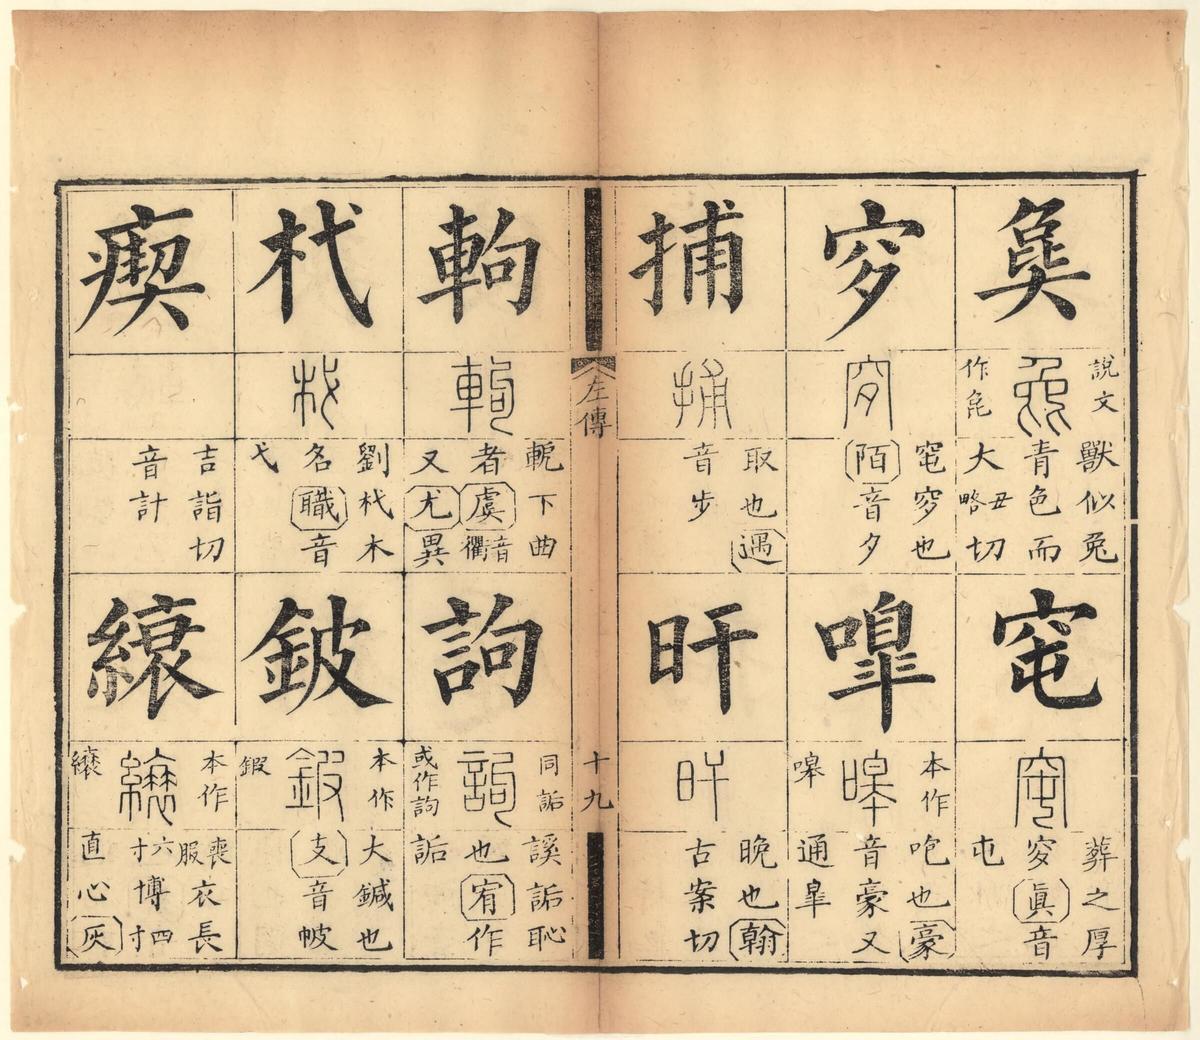 㚟
說文
作㲋
獸似兔
青色而
大丑略切
窀
葬之厚
窆眞音
屯
穸
窀穸也
陌音夕
嘷
本作
嗥
咆也豪
音豪又
通皐
捕
取也遇
音步
旰
晚也翰
古案切
左傳
十九
軥
軶下曲
者虞音衢
又尤異
訽
同詬
或作訽
謑詬恥
也宥作
詬
杙
劉杙木
名職音
弋
鈹
本作
鍜
大鍼也
支音帔
瘈
吉詣切
音計
縗
本作
喪服衣長
六寸博四寸
直心灰